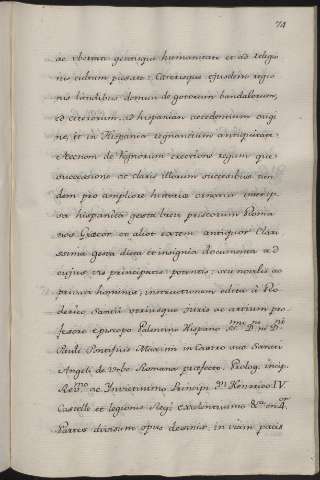 74
ac ubertate gentisque humanitate et ad religio
nis cultum pietate: Caeterisque ejusdem regio
nis laudibus demum de gotorum bandalorum,
ed caeterorum ad hispaniam accedentium origi
ne, et in Hispania regnantium antiquitate
Necnon de regnorum erectione regum que
successione ac claris illorum successibus tan
dem pro ampliore
sa hispanica gesta
nos Graecor et aliot extem antiquor Clari
ssima gesta dicta et insignia documenta ad
cujus vis principatis potentis, seu novalis ac
privati hominis, instructionem edita à Ro
derico Sancii utriusque Juris ac artium pro
fessore episcopo Palentino Hispano SS.mi D. ni D.ni
Pauli Pontificis Maximi in Castro suo Sancti
Angeli de Urbe Romana praefecto. Prolog. incip.
Ser.mo ac Invictissimo Principi D.n Henrico IV.
Castelle et legionis Regi excelentissimo &a. in 4.
Partes divisum opus desinit in vitam pacis